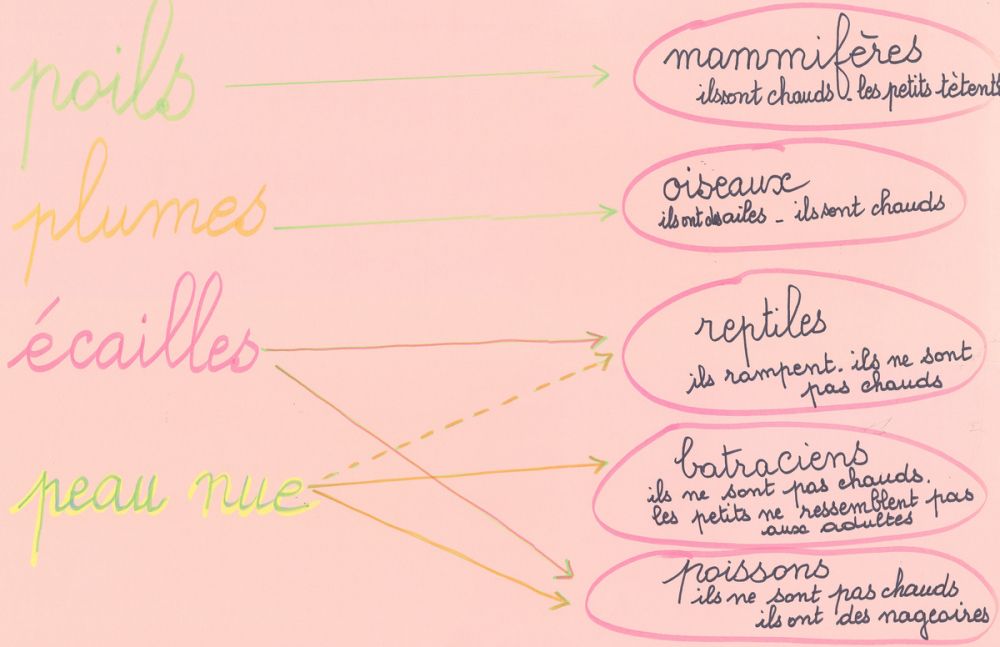 poils
mammifères
ils sont chauds - les petits tètent
plumes
oiseaux
ils ont des ailes - ils sont chauds
écailles
reptiles
ils rampent. ils ne sont
pas chauds
peau nue
batraciens
ils ne sont pas chauds.
les petits ne ressemblent pas
aux adultes
poissons
ils ne sont pas chauds
ils ont des nageoires